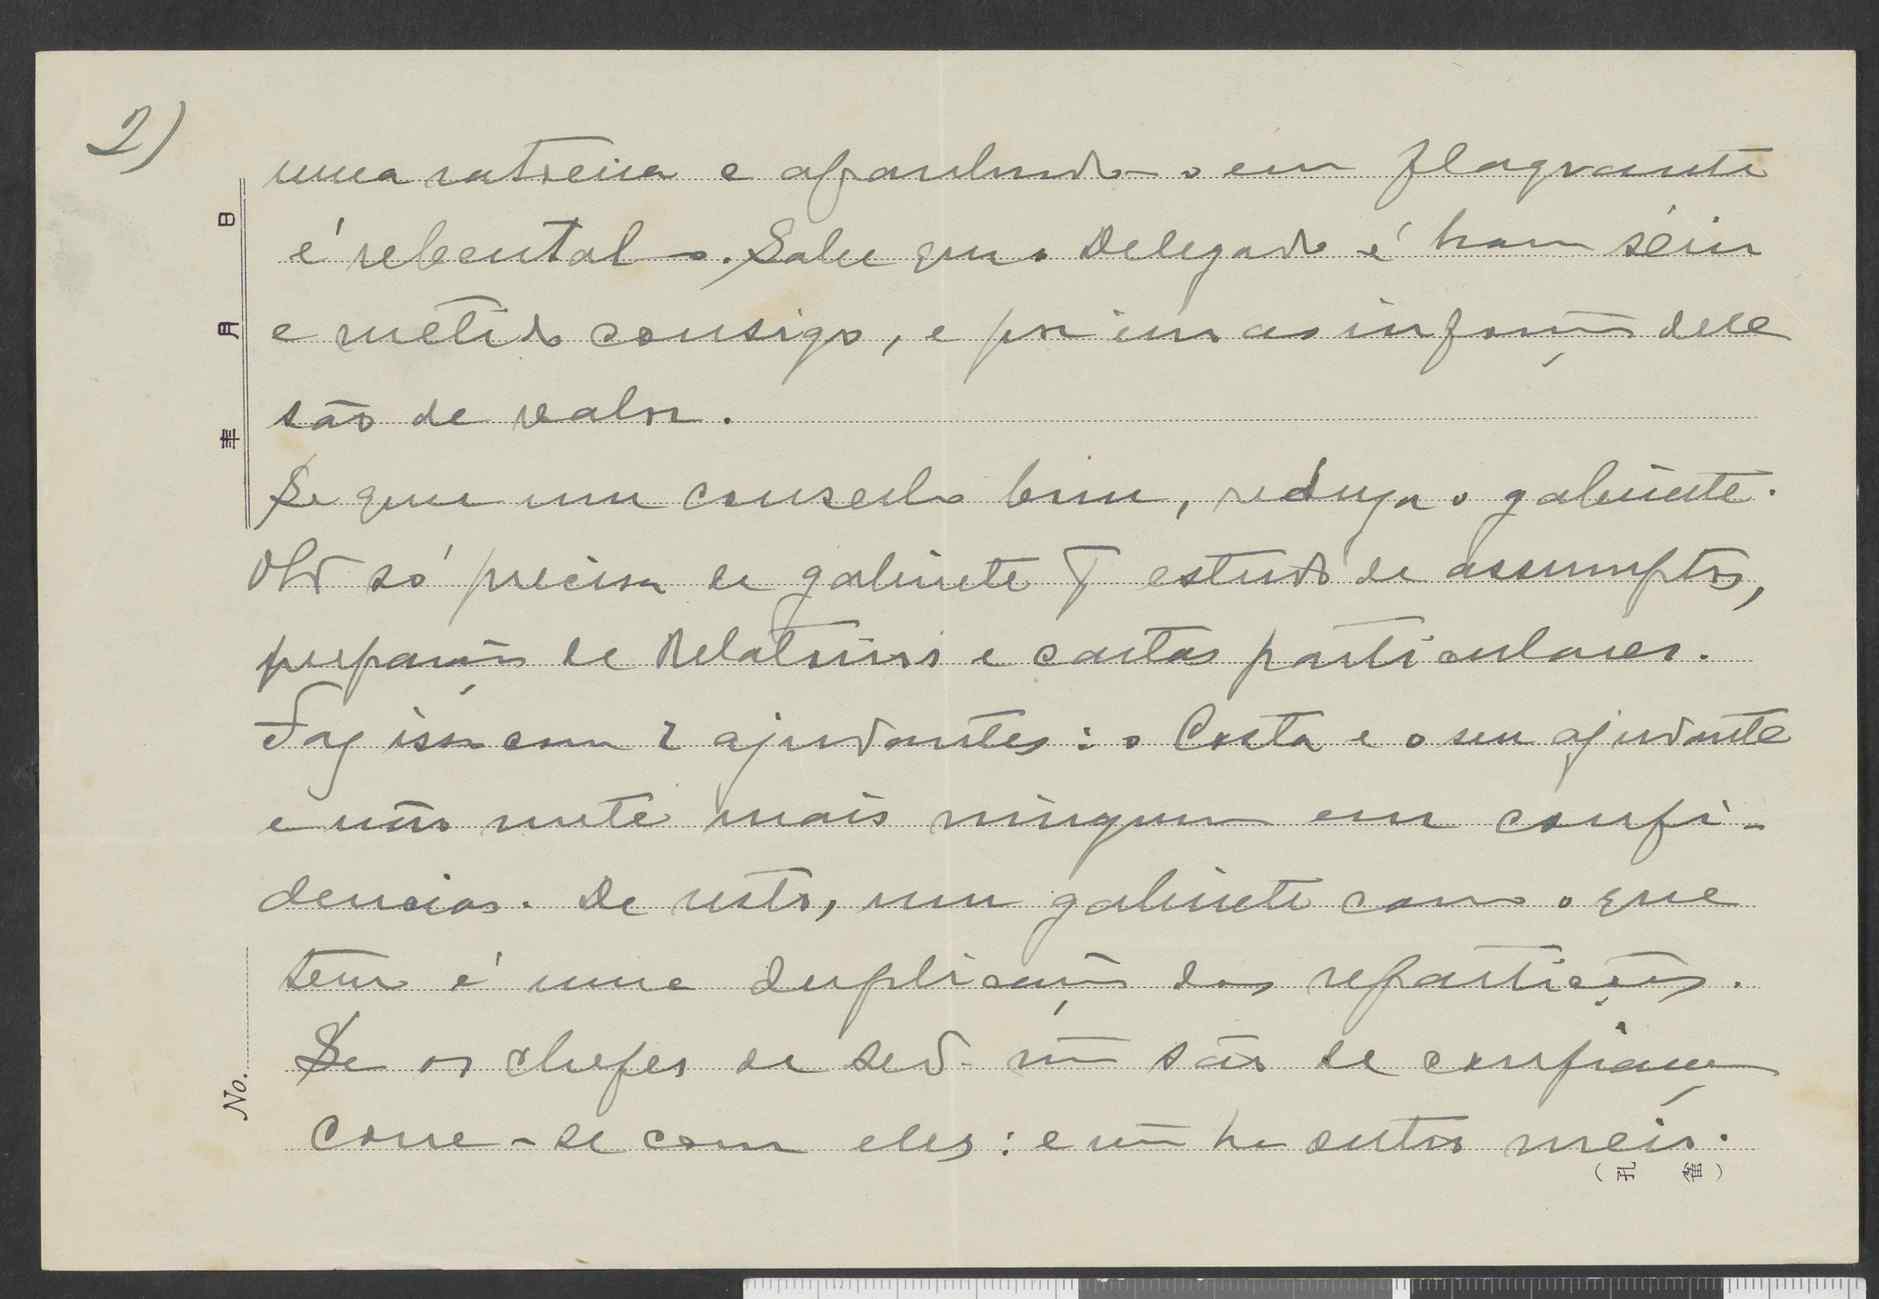 2)
uma ratoeira e apanhando-o em flagrante
é rebental-o. Sabe que o Delegado é homem sério
e metido consigo, e por isso as informaçõs dele
são de valor.
Se quer um conselho bom, reduza o gabinete.
só precisa de gabinete estudo de assumptos,
preparação de Relatorios e cartas particulares.
Faz isso com 2 ajudantes: o Costa e o seu ajudante
e não mete mais ninguem em confi-
dencias. De resto, um gabinete como o que
tem é uma duplicação das repartições.
Se os chefes de não são de confiança
corre-se com eles: e não ha outro meio.
日
月
年
No.
(孔雀)